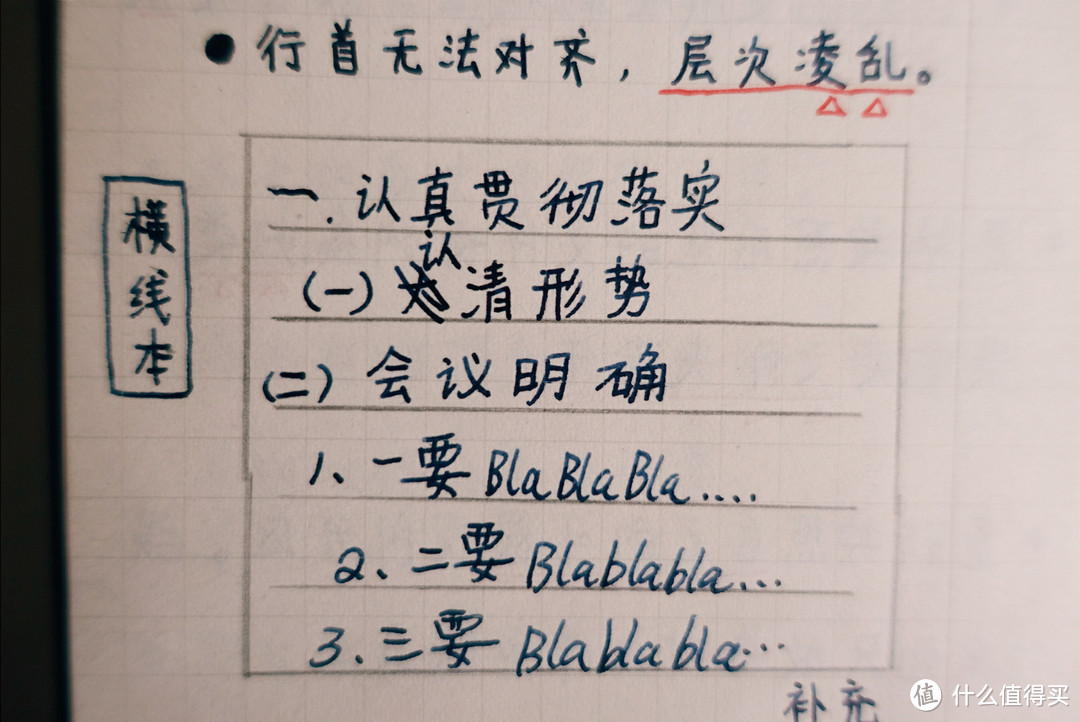 ●行首无法对齐，层次凌乱。
横线本
一.认真贯彻落实
(一)认清形势
(二)会议明确
1、一要BlaBlaBla....
2、二要Blablabla...
3.三要Blablabla...
补充
值 什么值得买